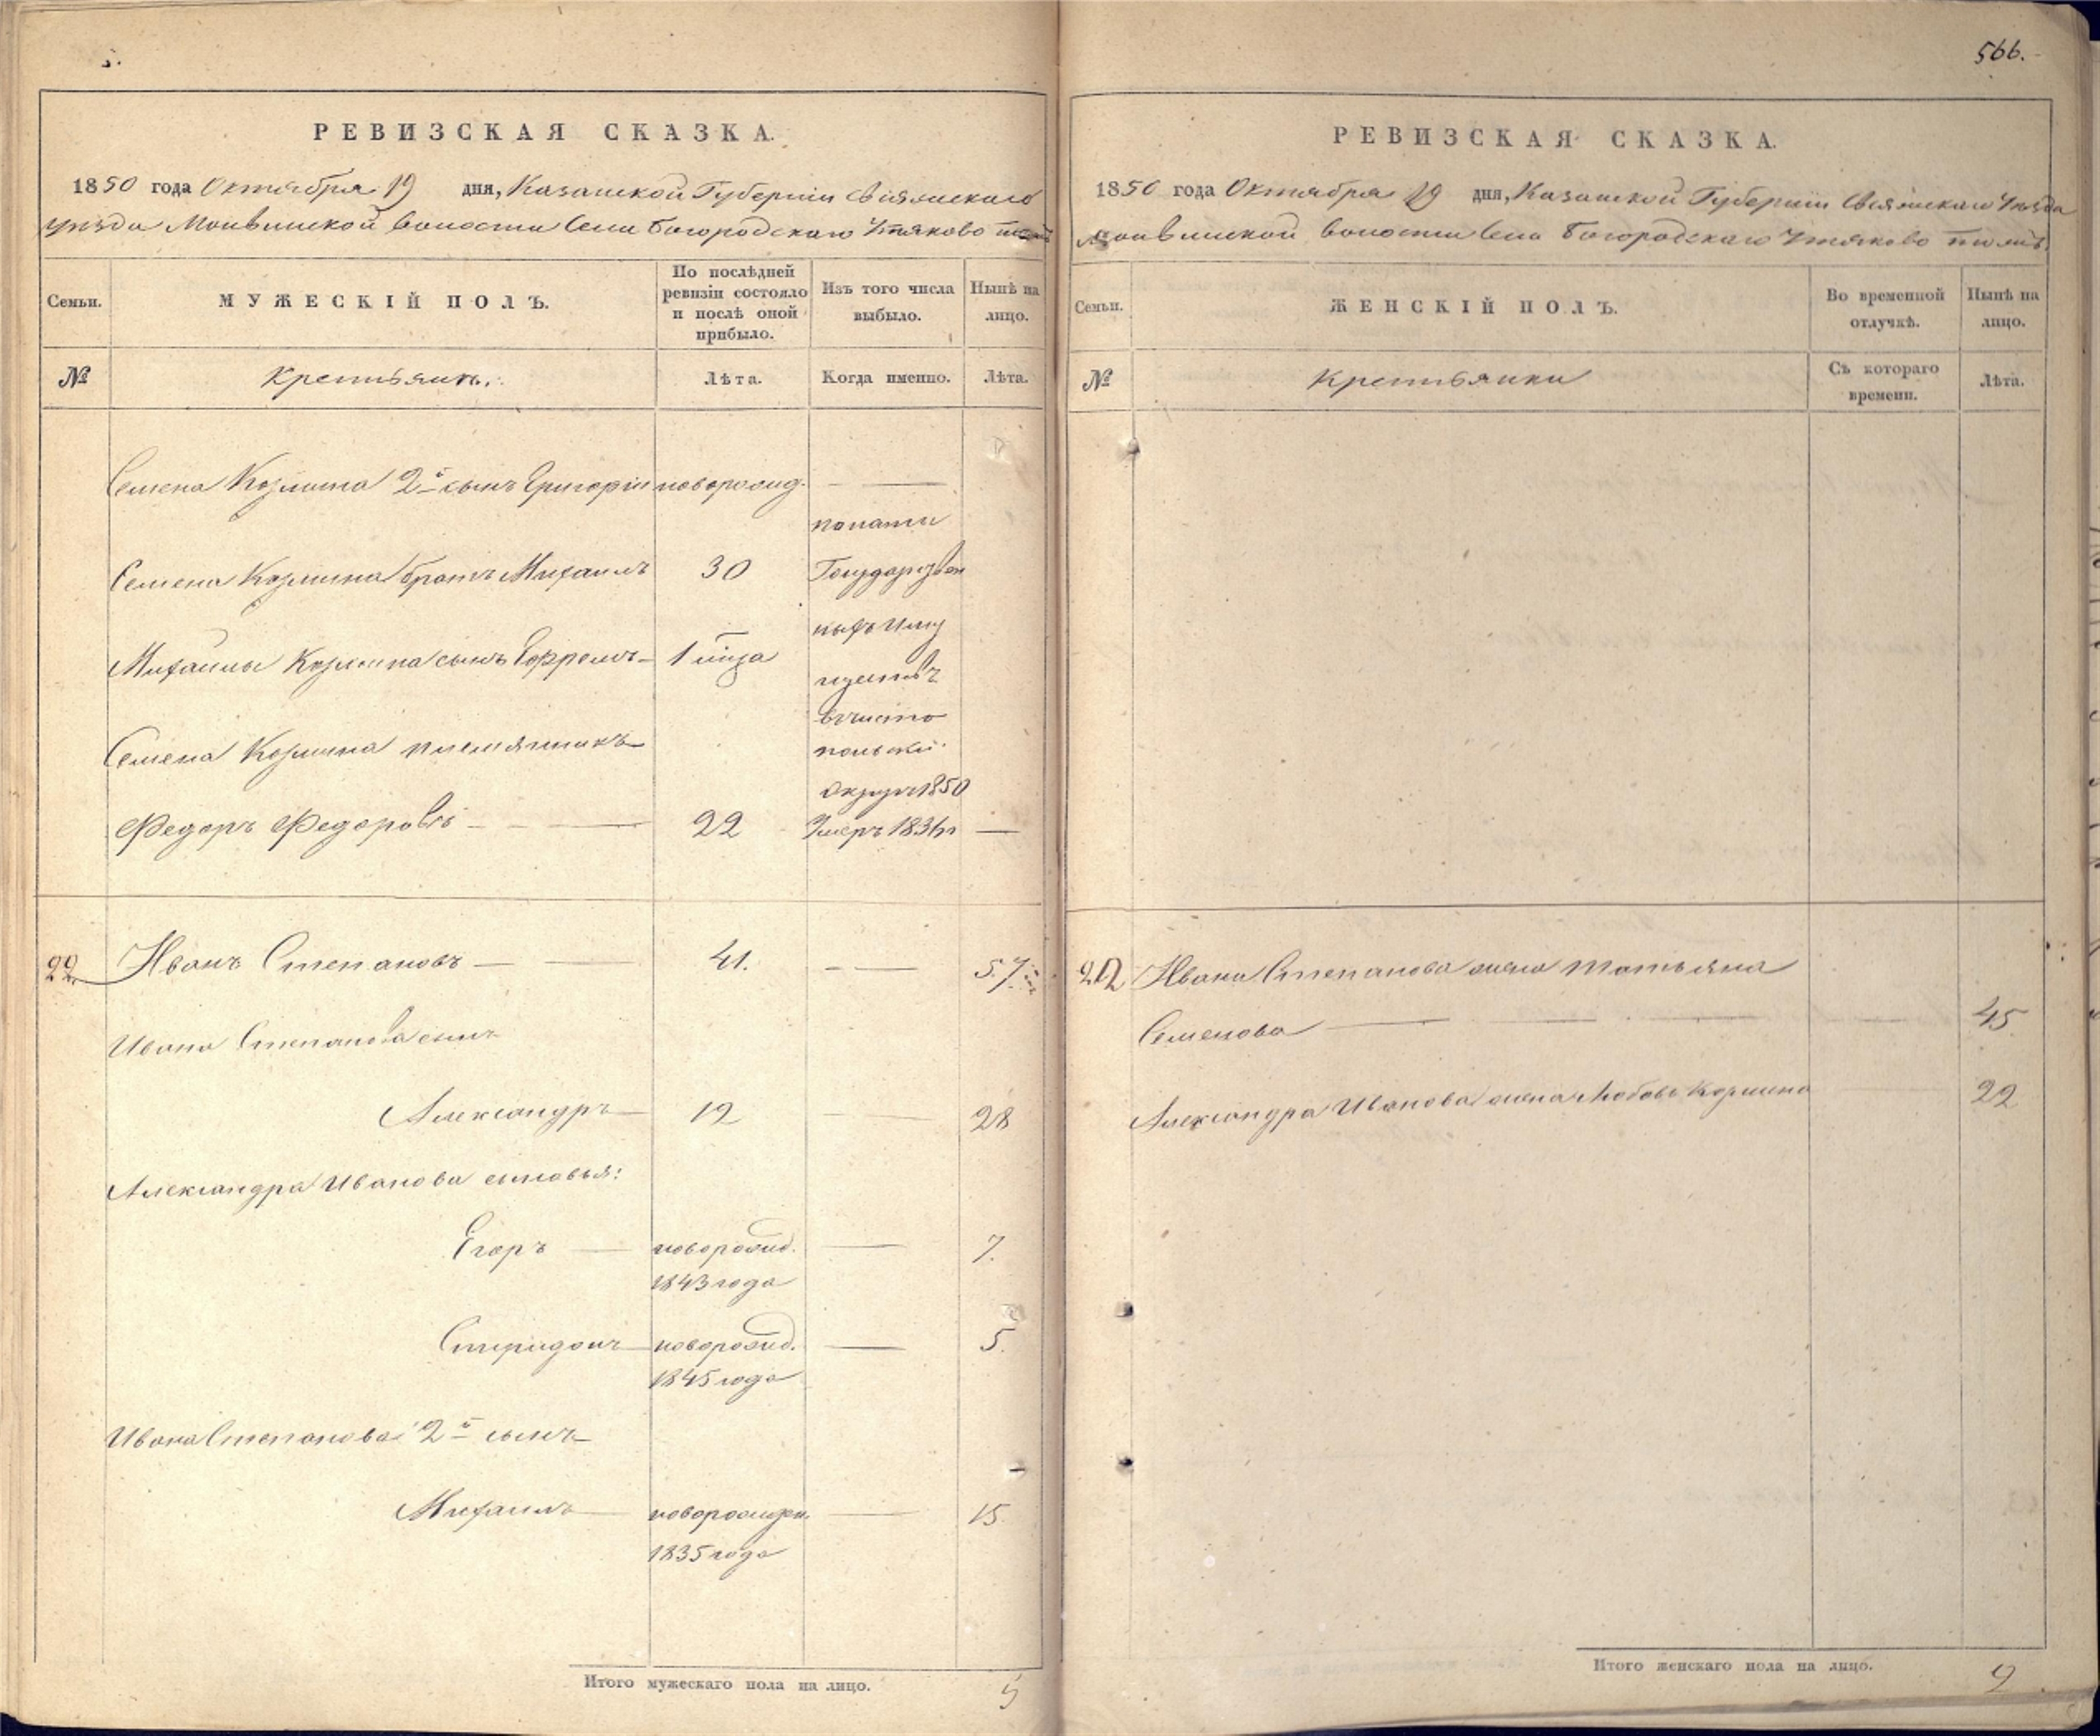 РЕВИЗСКАЯ СКАЗКА.
1850 года Октября 19 дня, Казанской Губернии Свіяжскаго
уѣзда волости Села Богородскаго Утяково тожъ
Семьи.
МУЖЕСКІЙ ПОЛЪ.
По послѣдней ревизіи состояло и послѣ оной прибыло.
Изъ того числа выбыло.
Нынѣ на лицо.
№
Крестьянъ.
Лѣта.
Когда именно.
Лѣта.
Семена Козмина 2й сынъ Григорій новорожд. —
по
Семена Козмина братъ Михаилъ 30 Государствен
ныхъ Иму
Михаилы Козмина сынъ Ефремъ — 1
ществъ
въ Чисто
Семена Козмина племянникъ
польской
округъ 1850
Федоръ Федоровъ — — 22 Умеръ —
22 Иванъ Степановъ — — 41. — — 57
Ивана Степанова сынъ
Александръ — 12 — 28
Александра Иванова сыновья:
Егоръ — новорожд. — 7.
1843 года
Спиридонъ — новорожд. — 5.
1845 года
Ивана Степанова 2й сынъ
Михаилъ — новорожден. — 15
1835 года
Итого мужескаго пола на лицо. 5
566.
РЕВИЗСКАЯ СКАЗКА.
1850 года Октября 19 дня, Казанской Губерніи Свіяжскаго Уѣзда
волости Села Богородскаго Утяково тожъ
Семьи.
ЖЕНСКІЙ ПОЛЪ.
Во временной отлучкѣ.
Нынѣ на лицо.
№
Крестьянки
Съ котораго времени.
Лѣта.
22 Ивана Степанова жена Татьяна
Семенова — — — — 45
Александра Иванова жена Любовь Козмина — 22
Итого женскаго пола на лицо.